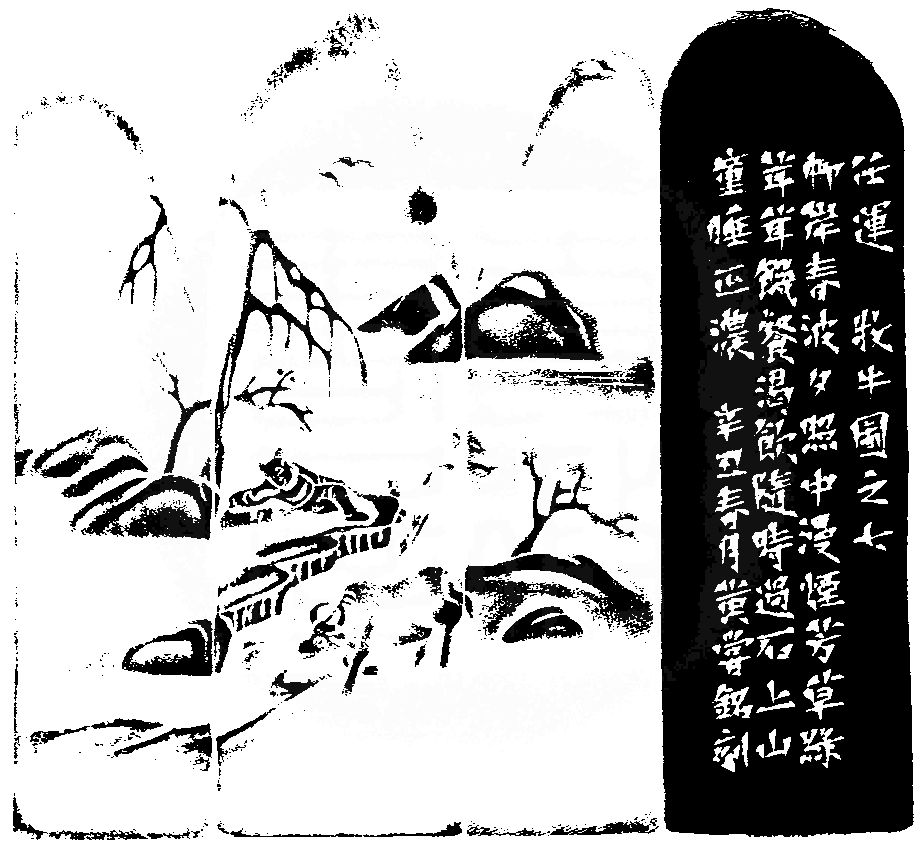 任運 牧牛圖之七
柳岸春波夕照中漫煙芳草綠
茸茸饑餐渴飲隨時過石上山
童睡正濃 辛丑春月銘刻